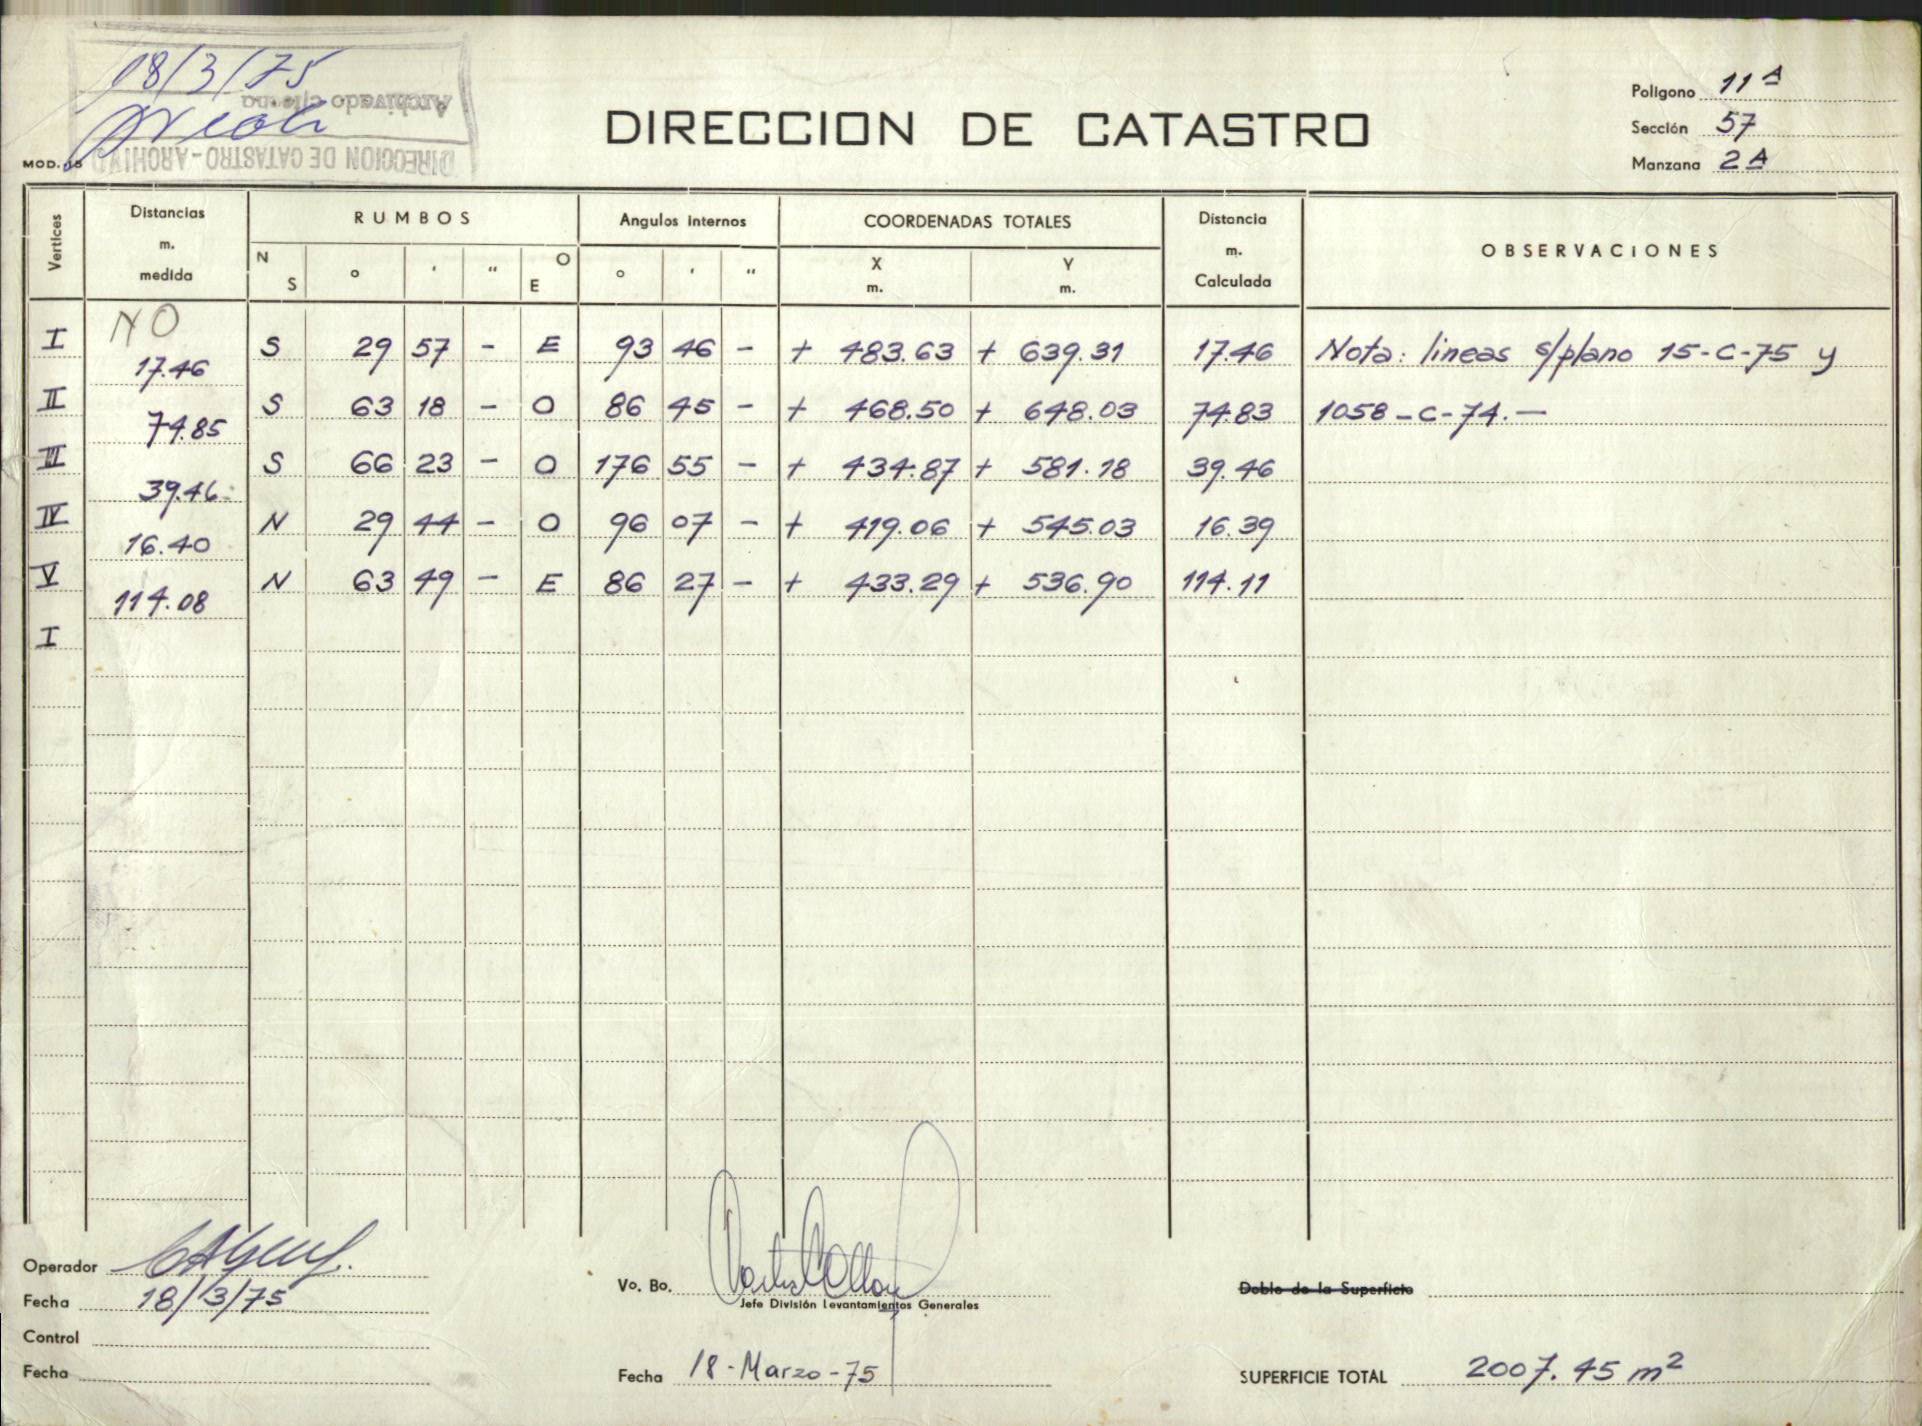 18/3/75
Archivado e/fecha
DIRECCION DE CATASTRO-ARCHIVO
MOD. 15
DIRECCION DE CATASTRO
Poligono 11 A
Sección 57
Manzana 2 A
Vertices
Distancias m. medida
RUMBOS
Angulos internos
COORDENADAS TOTALES
Distancia m. Calculada
OBSERVACIONES
N S ° ' " O E ° ' " X m. Y m.
NO
I 17.46 S 29 57 - E 93 46 - + 483.63 + 639.31 17.46 Nota: lineas s/plano 15-C-75 y
II 74.85 S 63 18 - O 86 45 - + 468.50 + 648.03 74.83 1058-C-74.—
III 39.46 S 66 23 - O 176 55 - + 434.87 + 581.18 39.46
IV 16.40 N 29 44 - O 96 07 - + 419.06 + 545.03 16.39
V 114.08 N 63 49 - E 86 27 - + 433.29 + 536.90 114.11
I
Operador
Fecha 18/3/75
Control
Fecha
Vo. Bo.
Jefe División Levantamientos Generales
Fecha 18-Marzo-75
Doble de la Superficie
SUPERFICIE TOTAL 2007.45 m2